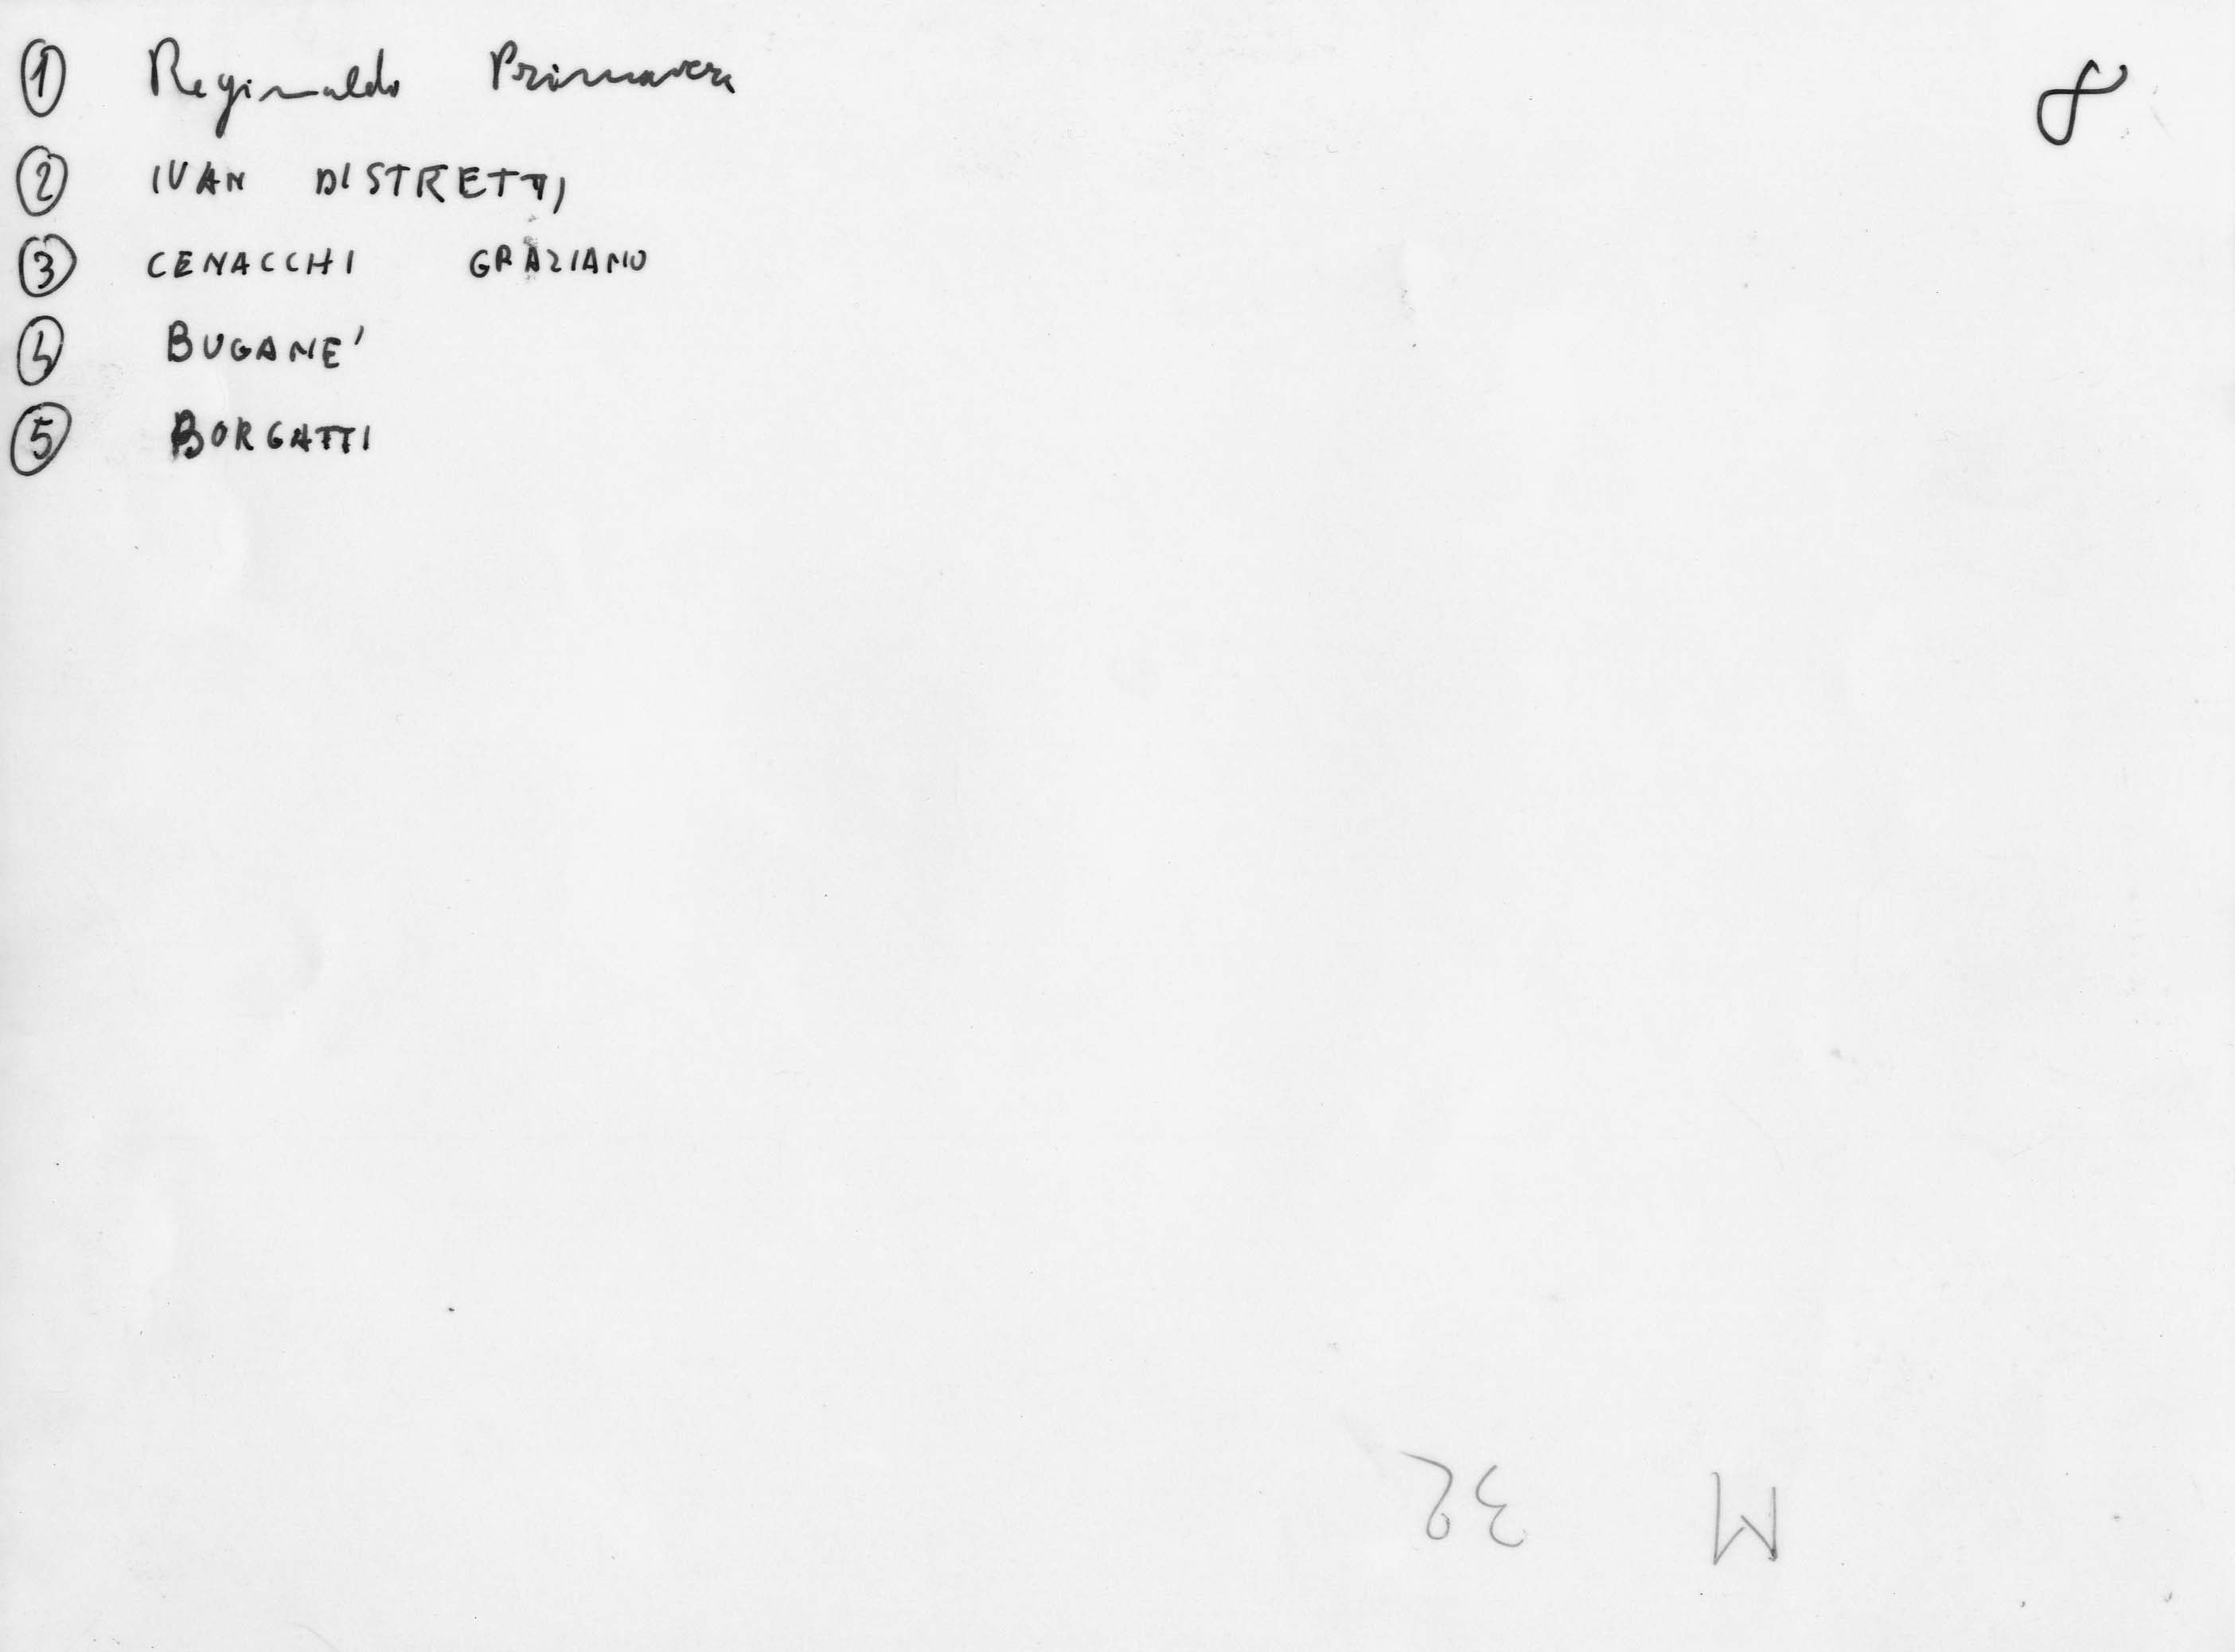 ① Reginaldo Primavera
8
② IVAN DISTRETTI
③ CENACCHI GRAZIANO
④ BUGANE'
⑤ BORGATTI
M 32